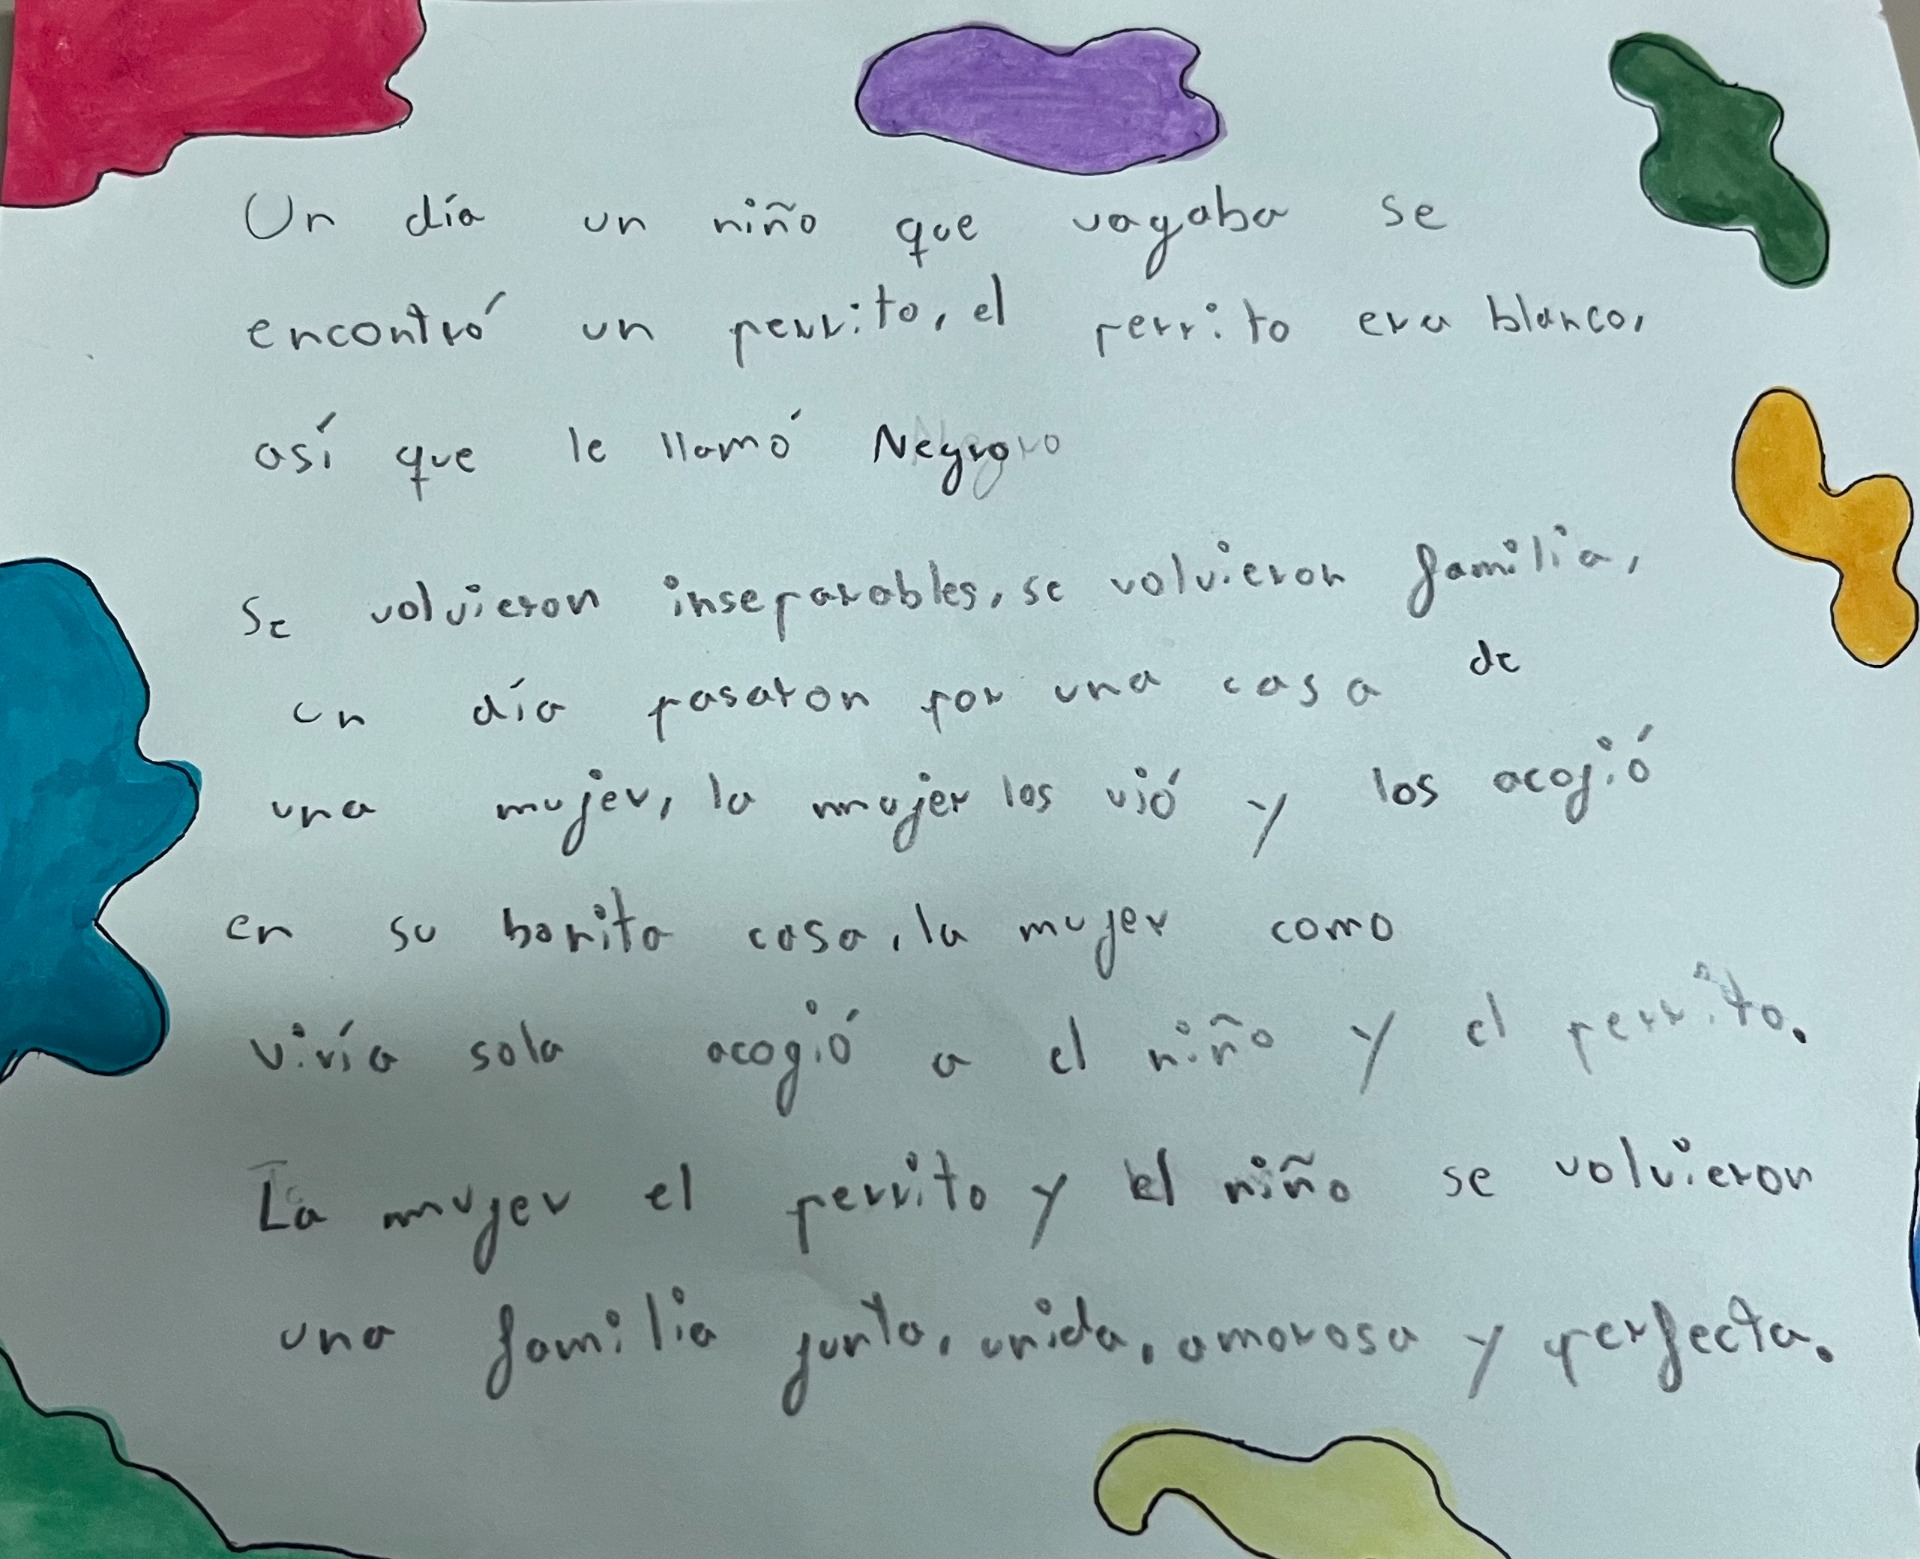 Un día un niño que vagaba se
encontró un perrito, el perrito era blanco,
así que le llamó Negro
Se volvieron inseparables, se volvieron familia,
un día pasaron por una casa de
una mujer, la mujer los vió y los acogió
en su bonita casa, la mujer como
vivía sola acogió a el niño y el perrito.
La mujer el perrito y el niño se volvieron
una familia junta, unida, amorosa y perfecta.